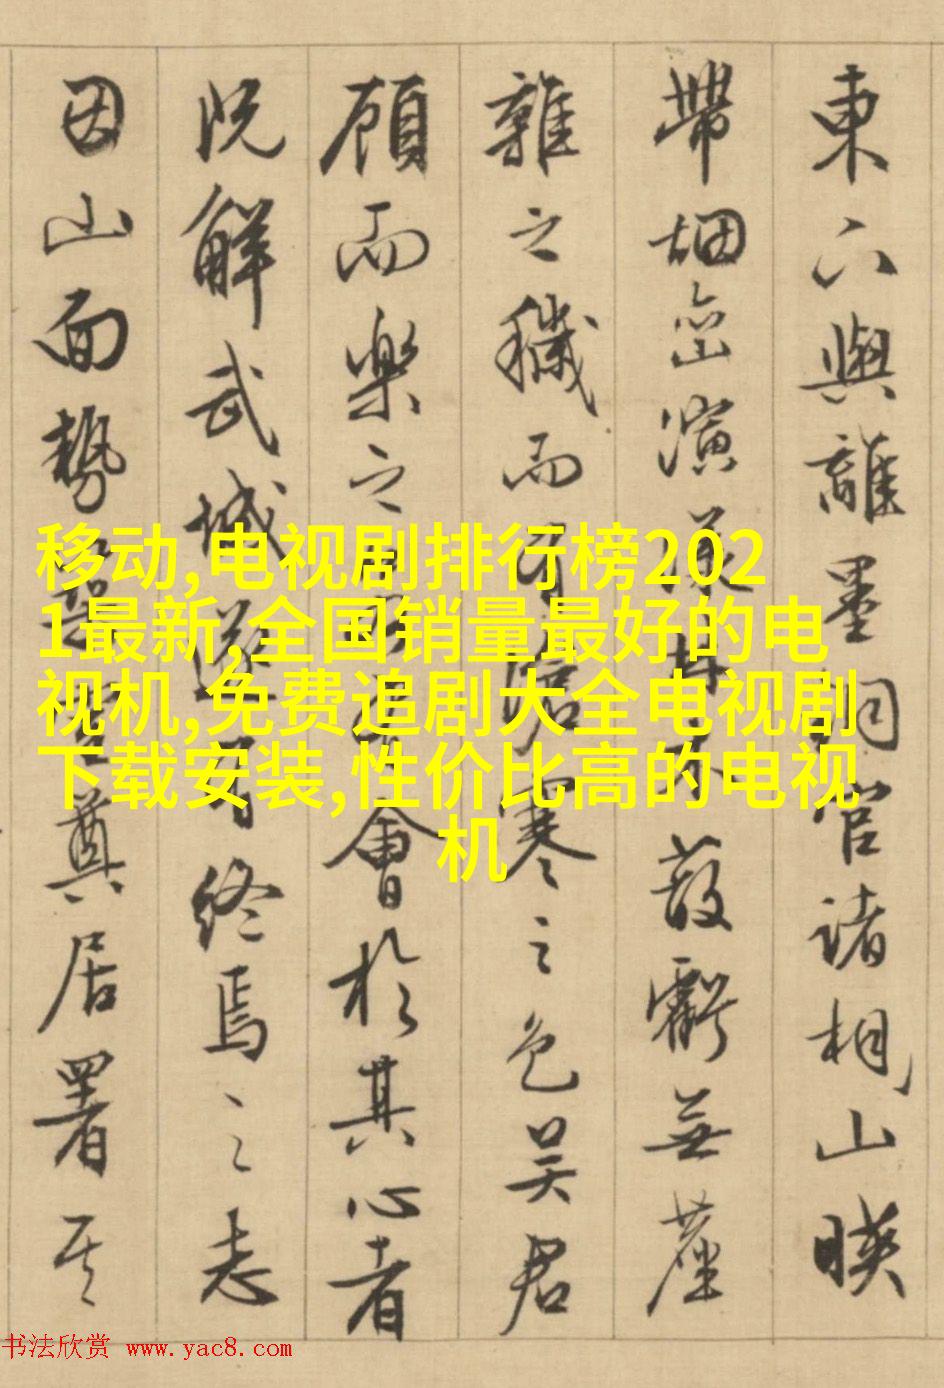 東六與離墨洞官諸相山暎
帶烟巒演漾林木蔽虧無塵
雜之穢而有寒之色吳君
顧而樂之會於其心者
既解武城遂終焉之志
因山面勢堂奠居署其
移动,电视剧排行榜202
1最新,全国销量最好的电
视机,免费追剧大全电视剧
下载安装,性价比高的电视
机
书法欣赏 www.yac8.com